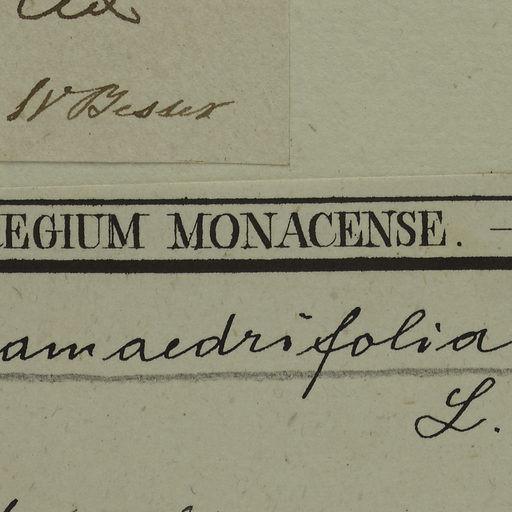 W Besser
EGIUM MONACENSE. —
amaedrifolia
L.